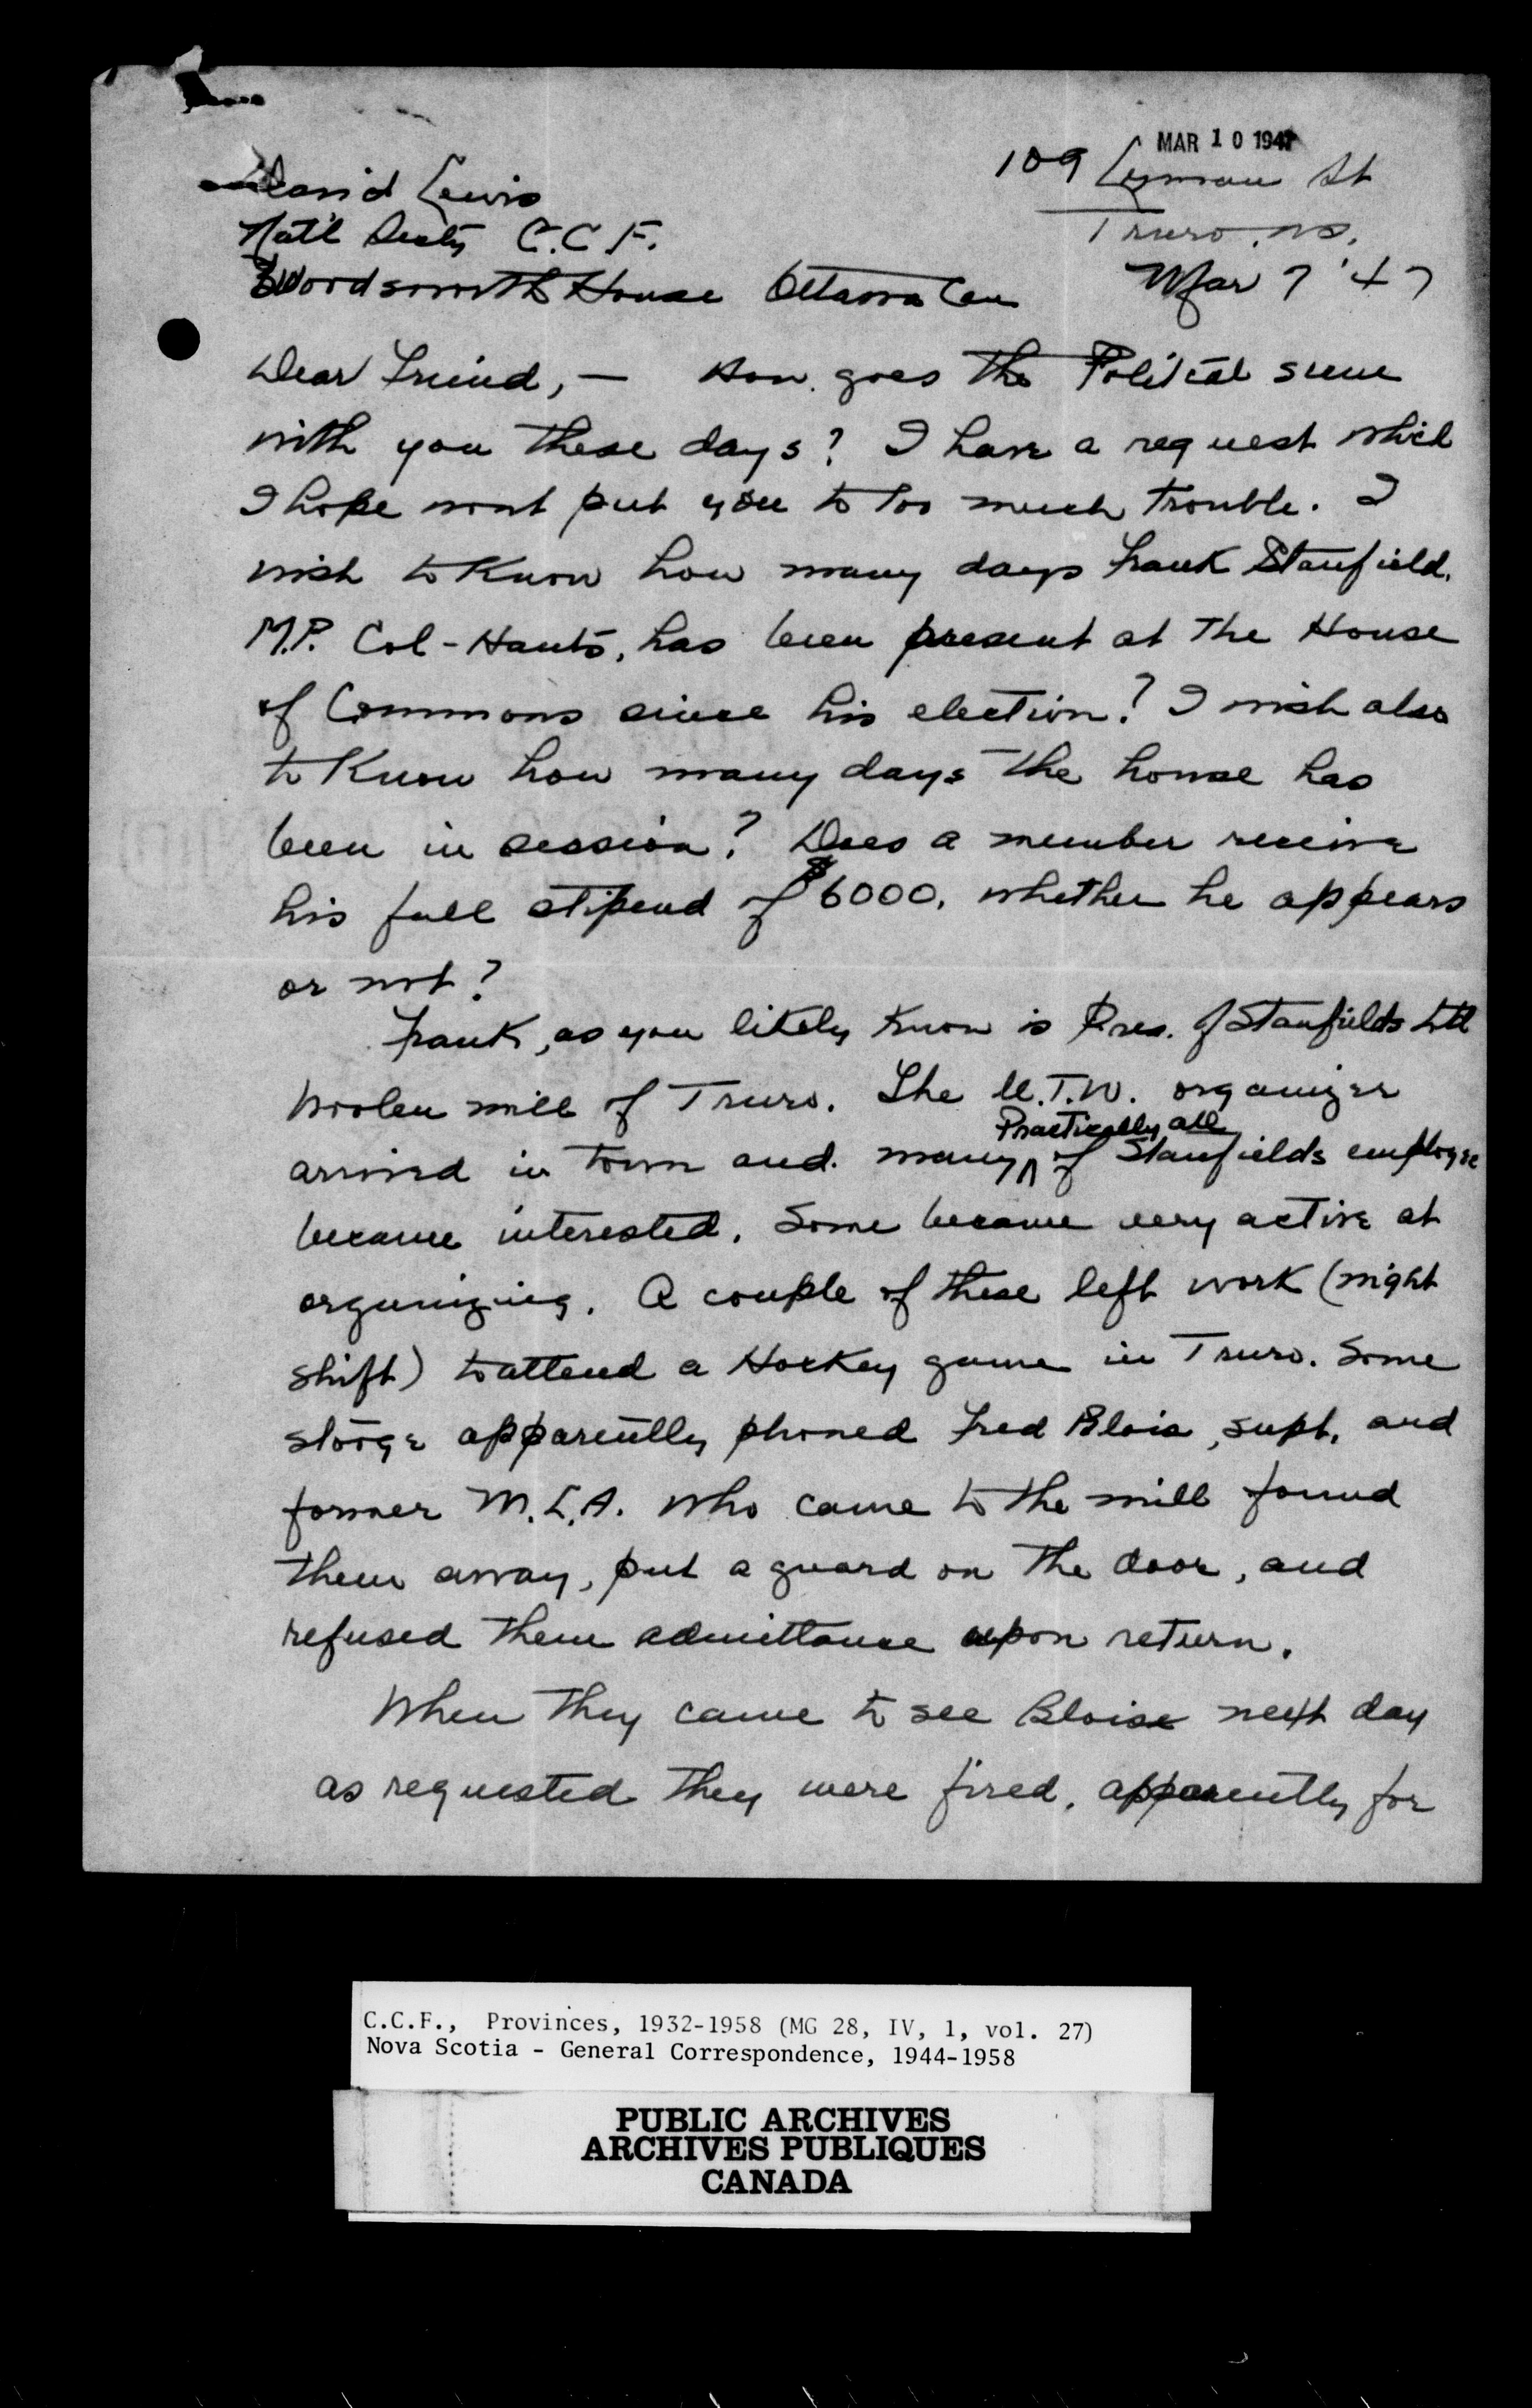 MAR 10 1947
109 Lyman St
Truro, NS.
Mar 7 '47
David Lewis
Nat'l Secty C.C.F.
Woodsworth House Ottawa Can
Dear Friend, — How goes the Political scene
with you these days? I have a request which
I hope wont put you to too much trouble. I
wish to know how many days Frank Stanfield,
M.P. Col-Hants, has been present at the House
of Commons since his election? I wish also
to know how many days the house has
been in session? Does a member receive
his full stipend of $6000, whether he appears
or not?
Frank, as you likely know is Pres. of Stanfields Ltd
woolen mill of Truro. The U.T.W. organizer
arrived in town and many Practically all of Stanfields employee
became interested. Some became very active at
organizing. A couple of these left work (night
shift) to attend a Hockey game in Truro. Some
stooge apparently phoned Fred Blois, supt. and
former M.L.A. who came to the mill found
them away, put a guard on the door, and
refused them admittance upon return.
When they came to see Bloise next day
as requested they were fired, apparently for
C.C.F., Provinces, 1932-1958 (MG 28, IV, 1, vol. 27)
Nova Scotia - General Correspondence, 1944-1958
PUBLIC ARCHIVES
ARCHIVES PUBLIQUES
CANADA